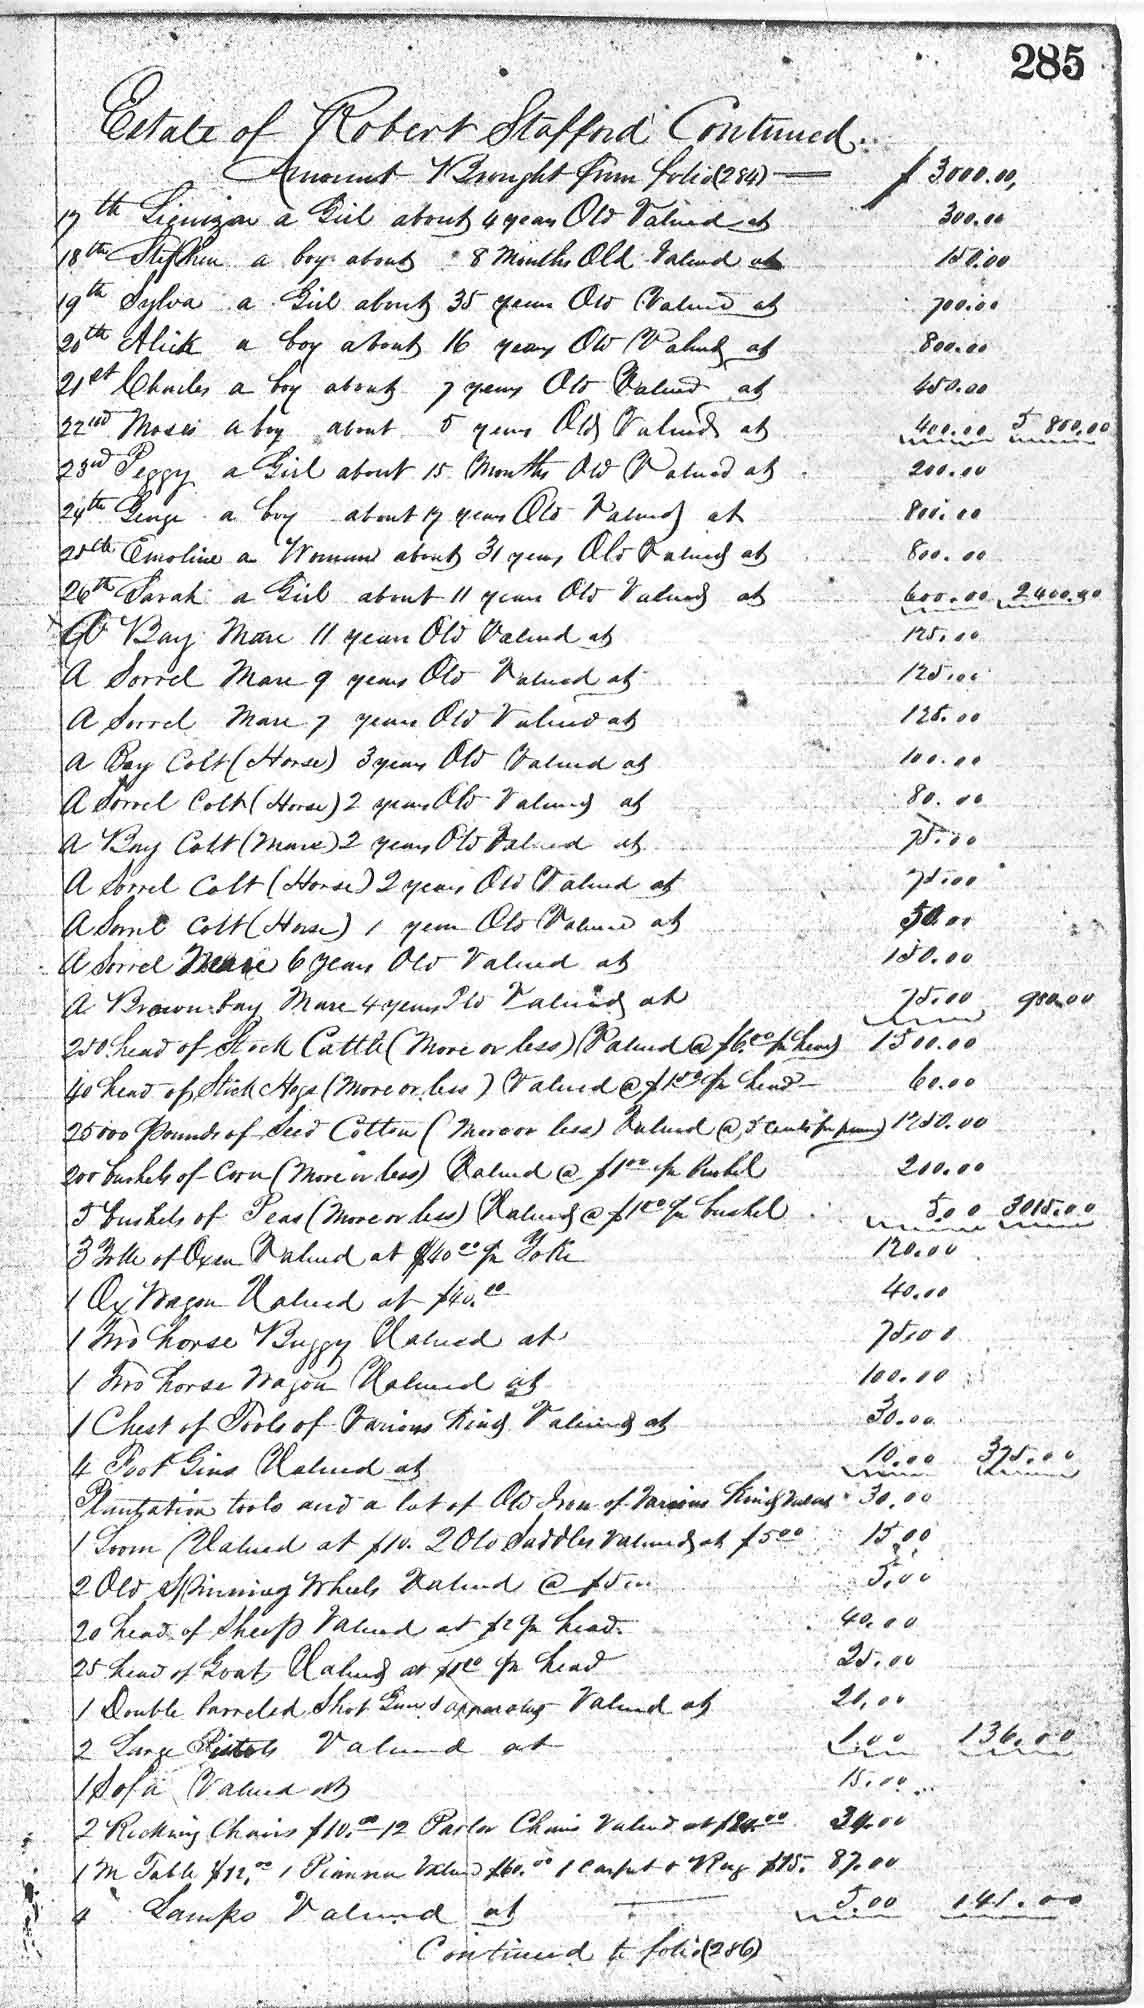 285
Estate of Robert Stafford Continued.
Amount Brought from folio (284) — $ 3000.00,
17th a Girl about 4 years Old Valued at 300.00
18th Stephen a boy about 8 Months Old Valued at 150.00
19th Sylva a Girl about 35 years Old Valued at 700.00
20th Alick a boy about 16 years Old Valued at 800.00
21st Charles a boy about 7 years Old Valued at 450.00
22nd Moses a boy about 5 years Old Valued at 400.00 5 800.00
23rd Peggy a Girl about 15 Months Old Valued at 200.00
24th George a boy about 17 years Old Valued at 800.00
25th Emoline a Woman about 31 years Old Valued at 800.00
26th Sarah a Girl about 11 years Old Valued at 600.00 2400.00
A Bay Mare 11 years Old Valued at 125.00
A Sorrel Mare 9 years Old Valued at 125.00
A Sorrel Mare 7 years Old Valued at 125.00
A Bay Colt (Horse) 3 years Old Valued at 100.00
A Sorrel Colt (Horse) 2 years Old Valued at 80.00
A Bay Colt (Mare) 2 years Old Valued at 75.00
A Sorrel Colt (Horse) 2 years Old Valued at 75.00
A Sorrel Colt (Horse) 1 year Old Valued at 50.00
A Sorrel Mare 6 years Old Valued at 150.00
A Brown bay Mare 4 years Old Valued at 75.00 980.00
250 head of Stock Cattle (More or less) Valued @ $6.00 pr head 1500.00
40 head of Stock Hogs (More or less) Valued @ $1.50 pr head — 60.00
25000 Pounds of Seed Cotton (More or less) Valued @ 5 cents pr pound 1250.00
200 bushels of Corn (More or less) Valued @ $1.00 pr bushel 200.00
5 bushels of Peas (More or less) Valued @ $1.00 pr bushel 5.00 3015.00
3 Yoke of Oxen Valued at $40.00 pr Yoke 120.00
1 Ox Wagon Valued at $40.00 40.00
1 Two horse Buggy Valued at 75.00
1 Two horse Wagon Valued at 100.00
1 Chest of Tools of Various Kinds Valued at 30.00
4 Foot Gins Valued at 10.00 375.00
Plantation tools and a lot of Old Iron of Various Kinds Valued 30.00
1 Loom Valued at $10. 2 Old Saddles Valued at $5.00 15.00
2 Old Spinning Wheels Valued @ $5.00 5.00
20 head of Sheep Valued at $2 pr head. 40.00
25 head of Goats Valued at $1.00 pr head 25.00
1 Double barreled Shot Gun & apparatus Valued at 20.00
2 Large Pistols Valued at 1.00 136.00
1 Sofa Valued at 15.00
2 Rocking Chairs $10.00 — 12 Parlor Chairs Valued at $24.00 34.00
1 M Table $12.00 1 Pianna Valued $60.00 1 Carpet & Rug $15. 87.00
4 Lamps Valued at 5.00 141.00
Continued to folio (286)